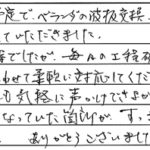 度で、ベランダの波板交換
ていただきました。
でしたが、毎日の工程
わせて柔軟に対応してくだ
も気軽に声かけできよか
なっていた箇所が、すっ
ありがとうございまし